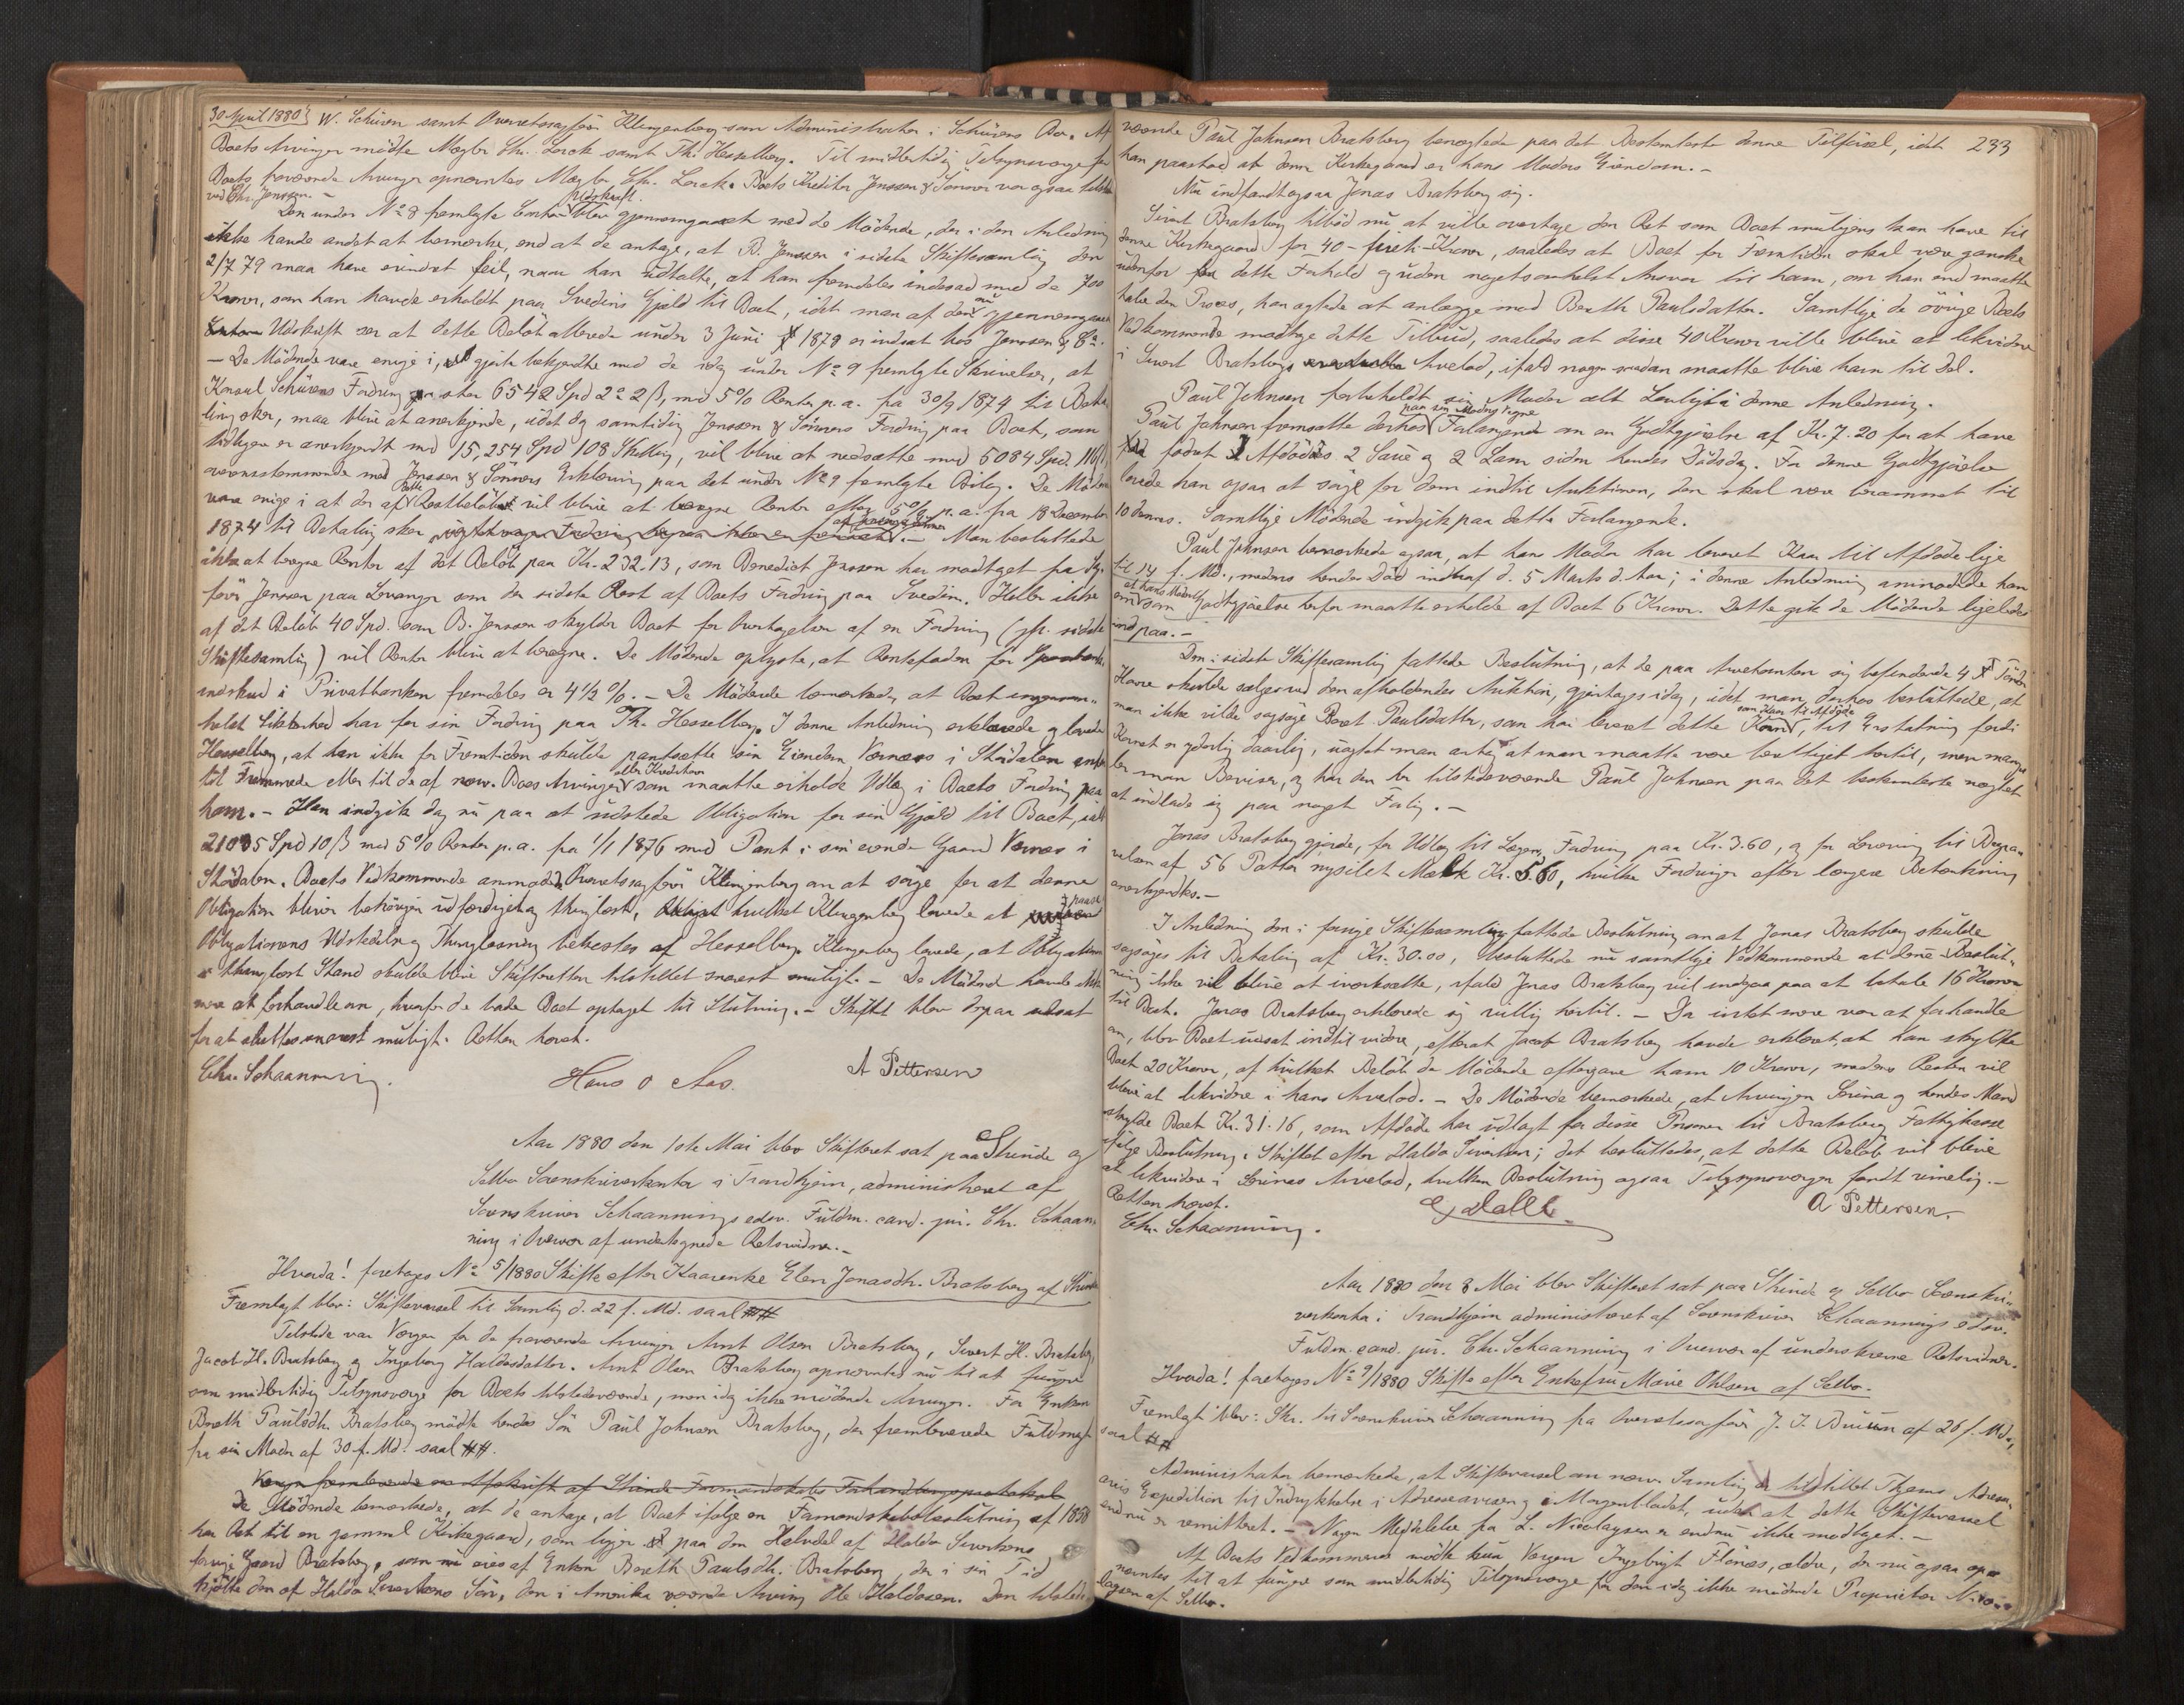 30 April 1880} W. Schüren samt Overretssagfører Klingenberg som Administrator i Schürens Bo. Af
Boets Arvinger mødte Mægler Chr. Lorck samt Th. Hesselberg. Til midlertidig Tilsynsværge for
Boets fraværende Arvinger opnævntes Mægler Chr. Lorck. Boets Kreditor Jenssen & Sønner var ogsaa tilstede
ved Chr. Jenssen. –
Den under No 8 fremlagte Conto Udskrift blev gjennemgaaet med de Mødende, der i den Anledning
ikke havde andet at bemærke, end at de antage, at B. Jenssen i sidste Skiftesamling den
2/7 79 maa have erindret feil, naar han udtalte, at han fremdeles indesad med de 700
Kroner, som han havde erholdt paa Svedins Gjæld til Boet, idet man af den nu gjennemgaaede
Udskrift ser at dette Beløb allerede under 3 Juni 1878 er indsat hos Jenssen & Co.
– De Mødende vare enige i, gjorte bekjendte med de idag under No 9 fremlagte Skrivelser, at
Konsul Schürens Fordring stor 6542 Spd 2 2 ß, med 5% Renter p.a. fra 30/9 1874 til Beta-
ling sker, maa blive at anerkjende, idet dog samtidig Jenssen & Sønners Fordring paa Boet, som
tidligere er anerkjendt med 15,254 Spd 108 Skilling, vil blive at nedsætte med 6084 Spd. 116 ß,
overensstemmende med Jenssen & Sønners Erklæring paa det under No 9 fremlagte Bilag. De Mødende
vare enige i at der af dette Restbeløb vil blive at beregne Renter efter 5% p.a. fra 18 December
1874 til Betaling sker. – Man besluttede
ikke at beregne Renter af det Beløb paa Kr. 232.13, som Benedict Jenssen har modtaget fra Sag-
fører Jenssen paa Levanger som den sidste Rest af Boets Fordring paa Svedin. Heller ikke
af det Beløb 40 Spd. som B. Jenssen skylder Boet for Overtagelsen af en Fordring (jfr. sidste
Skiftesamling) vil Renter blive at beregne. De Mødende oplyste, at Rentefoden for
indskud i Privatbanken fremdeles er 4 1/2 %. – De Mødende bemærkede, at Boet ingensom-
helst Sikkerhed har for sin Fordring paa Th. Hesselberg. I denne Anledning erklærede og lovede
Hesselberg, at han ikke for Fremtiden skulde pantsætte sin Eiendom Værnes i Stördalen enten
til Fremmede eller til de af nærv. Boes Arvinger eller Kreditorer som maatte erholde Udlæg i Boets Fordring paa
ham. – Han indgik dog nu paa at udstede Obligation for sin Gjæld til Boet, ialt
21035 Spd 10 ß med 5% Renter p.a. fra 1/1 1876 med Pant i sin eiende Gaard Værnes i
Stördalen. Boets Vedkommende anmodede Overretssagfører Klingenberg om at sørge for at denne
Obligation bliver behørigen udfærdiget og thinglæst, hvilket Klingenberg lovede at paase
Obligationens Udstedelse og Thinglæsning bekostes af Hesselberg. Klingenberg lovede, at Obligationen
i thinglæst Stand skulde blive Skifteretten tilstillet snarest muligt. – De Mødende havde intet
mere at forhandle om, hvorfor de bade Boet optaget til Slutning. – Skiftet blev derpaa udsat
for at sluttes snarest muligt. Retten hævet.
Chr. Schaanning.    Hans O Aas.    A Pettersen
Aar 1880 den 1ste Mai blev Skifteret sat paa Strinde og
Selbo Sorenskriverkontor i Trondhjem, administreret af
Sorenskriver Schaannings edsv. Fuldm. cand. jur. Chr. Schaan-
ning i Overvær af undertegnede Retsvidner. –
Hvorda! foretoges No 5/1880 Skifte efter Kaarenke Elen Jonasdtr. Bratsberg af Strinde
Fremlagt blev: Skiftevarsel til Samling d. 22 f. Md. saal ##
Tilstede var Værgen for de fraværende Arvinger Arnt Olsen Bratsberg, Sivert H. Bratsberg,
Jacob H. Bratsberg og Ingeborg Haldosdatter. Arnt Olsen Bratsberg opnævntes nu til at fungere
som midlertidig Tilsynsværge for Boets tilstedeværende, men idag ikke mødende Arvinger. For Enken
Bereth Paulsdtr. Bratsberg mødte hendes Søn Paul Johnsen Bratsberg, der fremleverede Fuldmagt
fra sin Moder af 30 f. Md. saal ##.
Værgen fremleverede en Afskrift af Strinde Formandskabs Forhandlingsprotokol
De Mødende bemærkede, at de antage, at Boet ifølge en Formandskabsbeslutning af 1858
har Ret til en gammel Kirkegaard, som ligger paa den Halvdel af Haldo Sivertsens
forrige Gaard Bratsberg, som nu eies af Enken Bereth Paulsdtr. Bratsberg, der i sin Tid
kjøbte den af Haldo Sivertsens Søn, den i Amerika værende Arving Ole Haldosen. Den tilstede-
værende Paul Johnsen Bratsberg benegtede paa det Bestemteste denne Tilførsel, idet 233
han paastod at denne Kirkegaard er hans Moders Eiendom. –
Nu indfandt ogsaa Jonas Bratsberg sig.
Sivert Bratsberg tilbød nu at ville overtage den Ret som Boet muligens kan have til
denne Kirkegaard for 40 – fireti – Kroner, saaledes at Boet for Fremtiden skal være ganske
udenfor dette Forhold og uden nogetsomhelst Ansvar til ham, om han end maatte
tabe den Proces, han agtede at anlægge mod Bereth Paulsdatter. Samtlige de øvrige Boets
Vedkommende modtoge dette Tilbud, saaledes at disse 40 Kroner ville blive at likvidere
i Sivert Bratsbergs Arvelod, ifald nogen saadan maatte blive ham til Del.
Paul Johnsen forbeholdt sin Moder alt Lovligt i denne Anledning.
Paul Johnsen fremsatte derhos paa sin Moders Vegne Forlangende om en Godtgjørelse af Kr. 7.20 for at have
fodret Afdødes 2 Sauer og 2 Lam siden hendes Dødsdag. For denne Godtgjørelse
lovede han ogsaa at sørge for dem indtil Auktionen, der skal være berammet til
10 dennes. Samtlige Mødende indgik paa dette Forlangende.
Paul Johnsen bemærkede ogsaa, at hans Moder har leveret Kaar til Afdøde lige
til 14 f. Md., medens hendes Død indtraf d. 5 Marts d. Aar; i denne Anledning anmodede han
om at hans Moder som Godtgjørelse herfor maatte erholde af Boet 6 Kroner. Dette gik de Mødende ligeledes
ind paa. –
Den i sidste Skiftesamling fattede Beslutning, at de paa Arvetomten sig befindende 4 Tønder
Havre skulde sælges ved den afholdendes Auktion, gjentoges idag, idet man derhos besluttede, at
man ikke vilde sagsøge Beret Paulsdatter, som har leveret dette Korn som Kaar til Afdøde, til Erstatning fordi
Kornet er yderlig daarlig, uagtet man antog at man maatte være berettiget hertil, men mang-
ler man Beviser, og har den her tilstedeværende Paul Johnsen paa det bestemteste negtet
at indlade sig paa noget Forlig. –
Jonas Bratsberg gjorde, for Udlæg til Lægen, Fordring paa Kr. 3.60, og for Levering til Begra-
velsen af 56 Potter nysilet Mælk Kr. 5.60, hvilke Fordringer efter længere Betænkning
anerkjendtes. –
I Anledning den i forrige Skiftesamling fattede Beslutning om at Jonas Bratsberg skulde
sagsøges til Betaling af Kr. 30.00, besluttede nu samtlige Vedkommende at denne Beslut-
ning ikke vil blive at iværksætte, ifald Jonas Bratsberg vil indgaa paa at betale 16 Kroner
til Boet. Jonas Bratsberg erklærede sig villig hertil. – Da intet mere var at forhandle
om, blev Boet udsat indtil videre, efterat Jacob Bratsberg havde erklæret at han skyldte
Boet 20 Kroner, af hvilket Beløb de Mødende eftergave ham 10 Kroner, medens Resten vil
blive at likvidere i hans Arvelod. – De Mødende bemærkede, at Arvingen Serina og hendes Mand
skylde Boet Kr. 31.16, som Afdøde har udlagt for disse Personer til Bratsberg Fattigkasse
ifølge Beslutning i Skiftet efter Haldo Sivertsen; det besluttedes, at dette Beløb vil blive
at likvidere i Serines Arvelod, hvilken Beslutning ogsaa Tilsynsværgen fandt rimelig. –
Retten hævet.
Chr. Schaanning.    A Pettersen.
Aar 1880 den 8 Mai blev Skifteret sat paa Strinde og Selbo Sorenskri-
verkontor i Trondhjem administreret af Sorenskriver Schaannings edsv.
Fuldm. cand. jur. Chr. Schaanning i Overvær af underskrevne Retsvidner.
Hvorda! foretoges No 9/1880 Skifte efter Enkefru Marie Ohlsen af Selbo.
Fremlagt blev: Skr. til Sorenskriver Schaanning fra Overretssagfører J. J. Bruun af 26 f. Md.,
saal ##
Administrator bemærkede, at Skiftevarsel om nærv. Samling er tilstillet Thams Adresse-
avis Expedition til Indrykkelse i Adresseavisen og i Morgenbladet, uden at dette Skiftevarsel
endnu er remitteret. – Nogen Meddelelse fra L. Nicolaysen er endnu ikke modtaget. –
Af Boets Vedkommende mødte kun Værgen Ingebrigt Flønæs, ældre, der nu ogsaa op-
nævntes til at fungere som midlertidig Tilsynsværge for den idag ikke mødende Proprietær Nico-
laysen af Selbo.